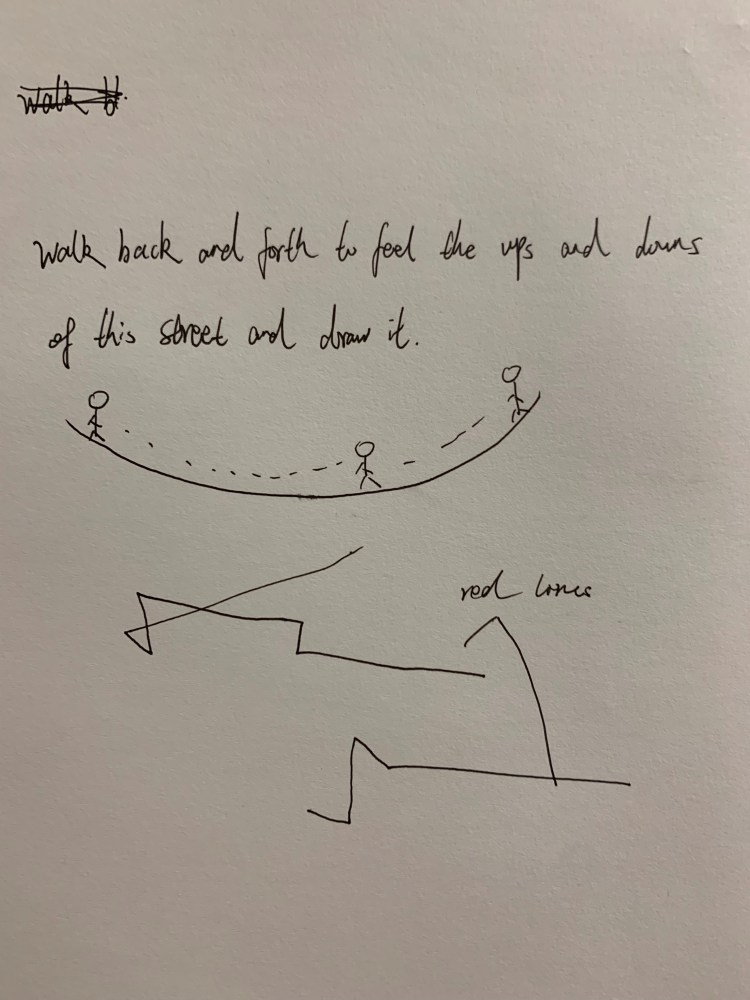 walk b
Walk back and forth to feel the ups and downs
of this street and draw it.
red lines